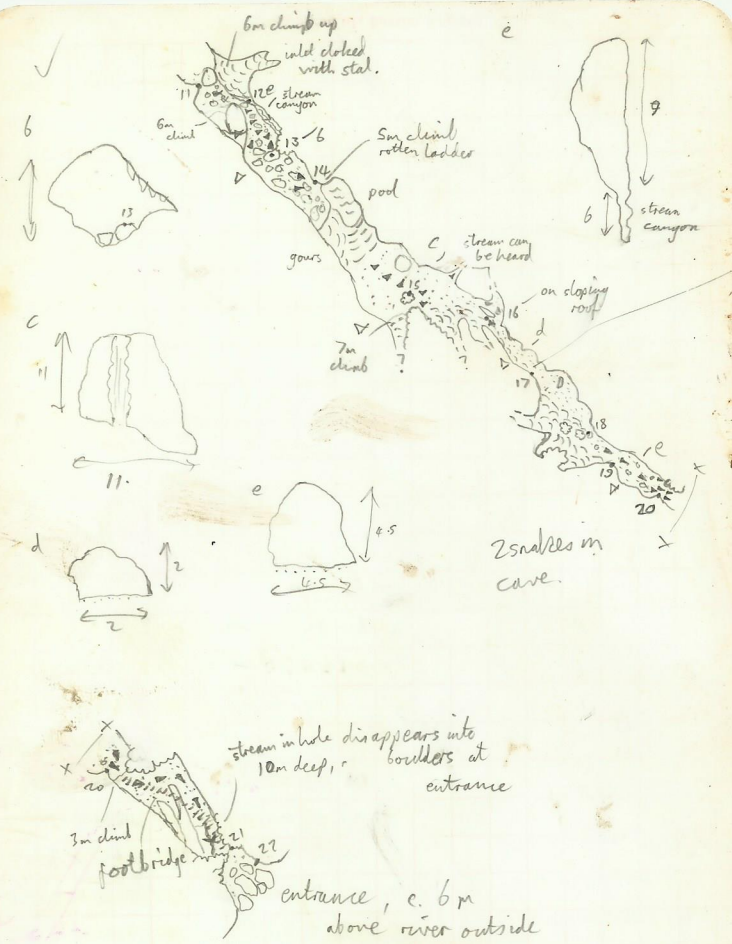 6m climb up
inld cloked
with stal.
e
11
12 e
stream
canyon
6m
climb
13
6
5m climb
rotten ladder
14
pool
9
6
13
6
stream
canyon
gours
c
stream can
be heard
15
16
on sloping
roof
d
7m
climb
?
?
17
D
18
e
19
20
x
x
c
11
11.
e
4.5
4.5
d
2
2
2 snakes in
cave.
x
x
20
stream in hole disappears into
10m deep,
boulders at
entrance
3m climb
footbridge
21
22
entrance, c. 6m
above river outside